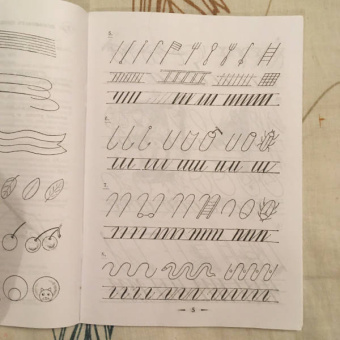 5.
6.
7.
8.
— 5 —